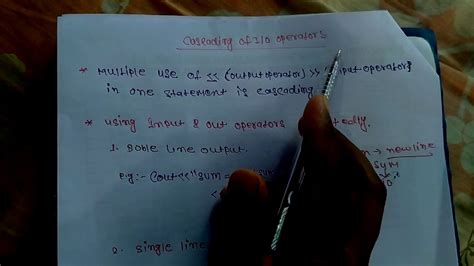 Cascading of I/O operators
* Multiple use of << (output operator) >> "input operator}
in one statement is cascading
* using Input & out operators
1. Sable line output.
→ newline
e.g:- Cout<<"SUM = SUM
<<
2. single line